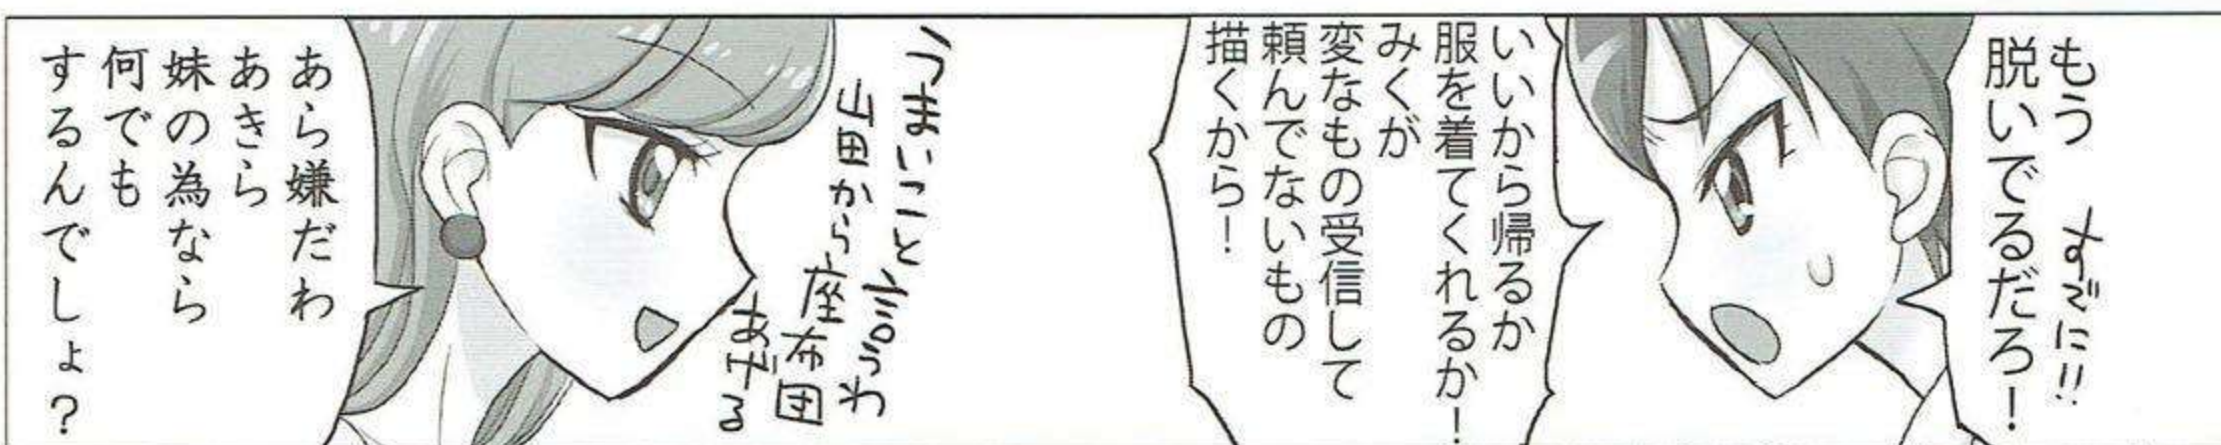 もう すでに!!
脱いでるだろ!
いいから帰るか
服を着てくれるか!
みくが
変なもの受信して
頼んでないもの
描くから!
うまいこと言うわ
山田から座布団
あげる
あら嫌だわ
あきら
妹の為なら
何でも
するんでしょ?